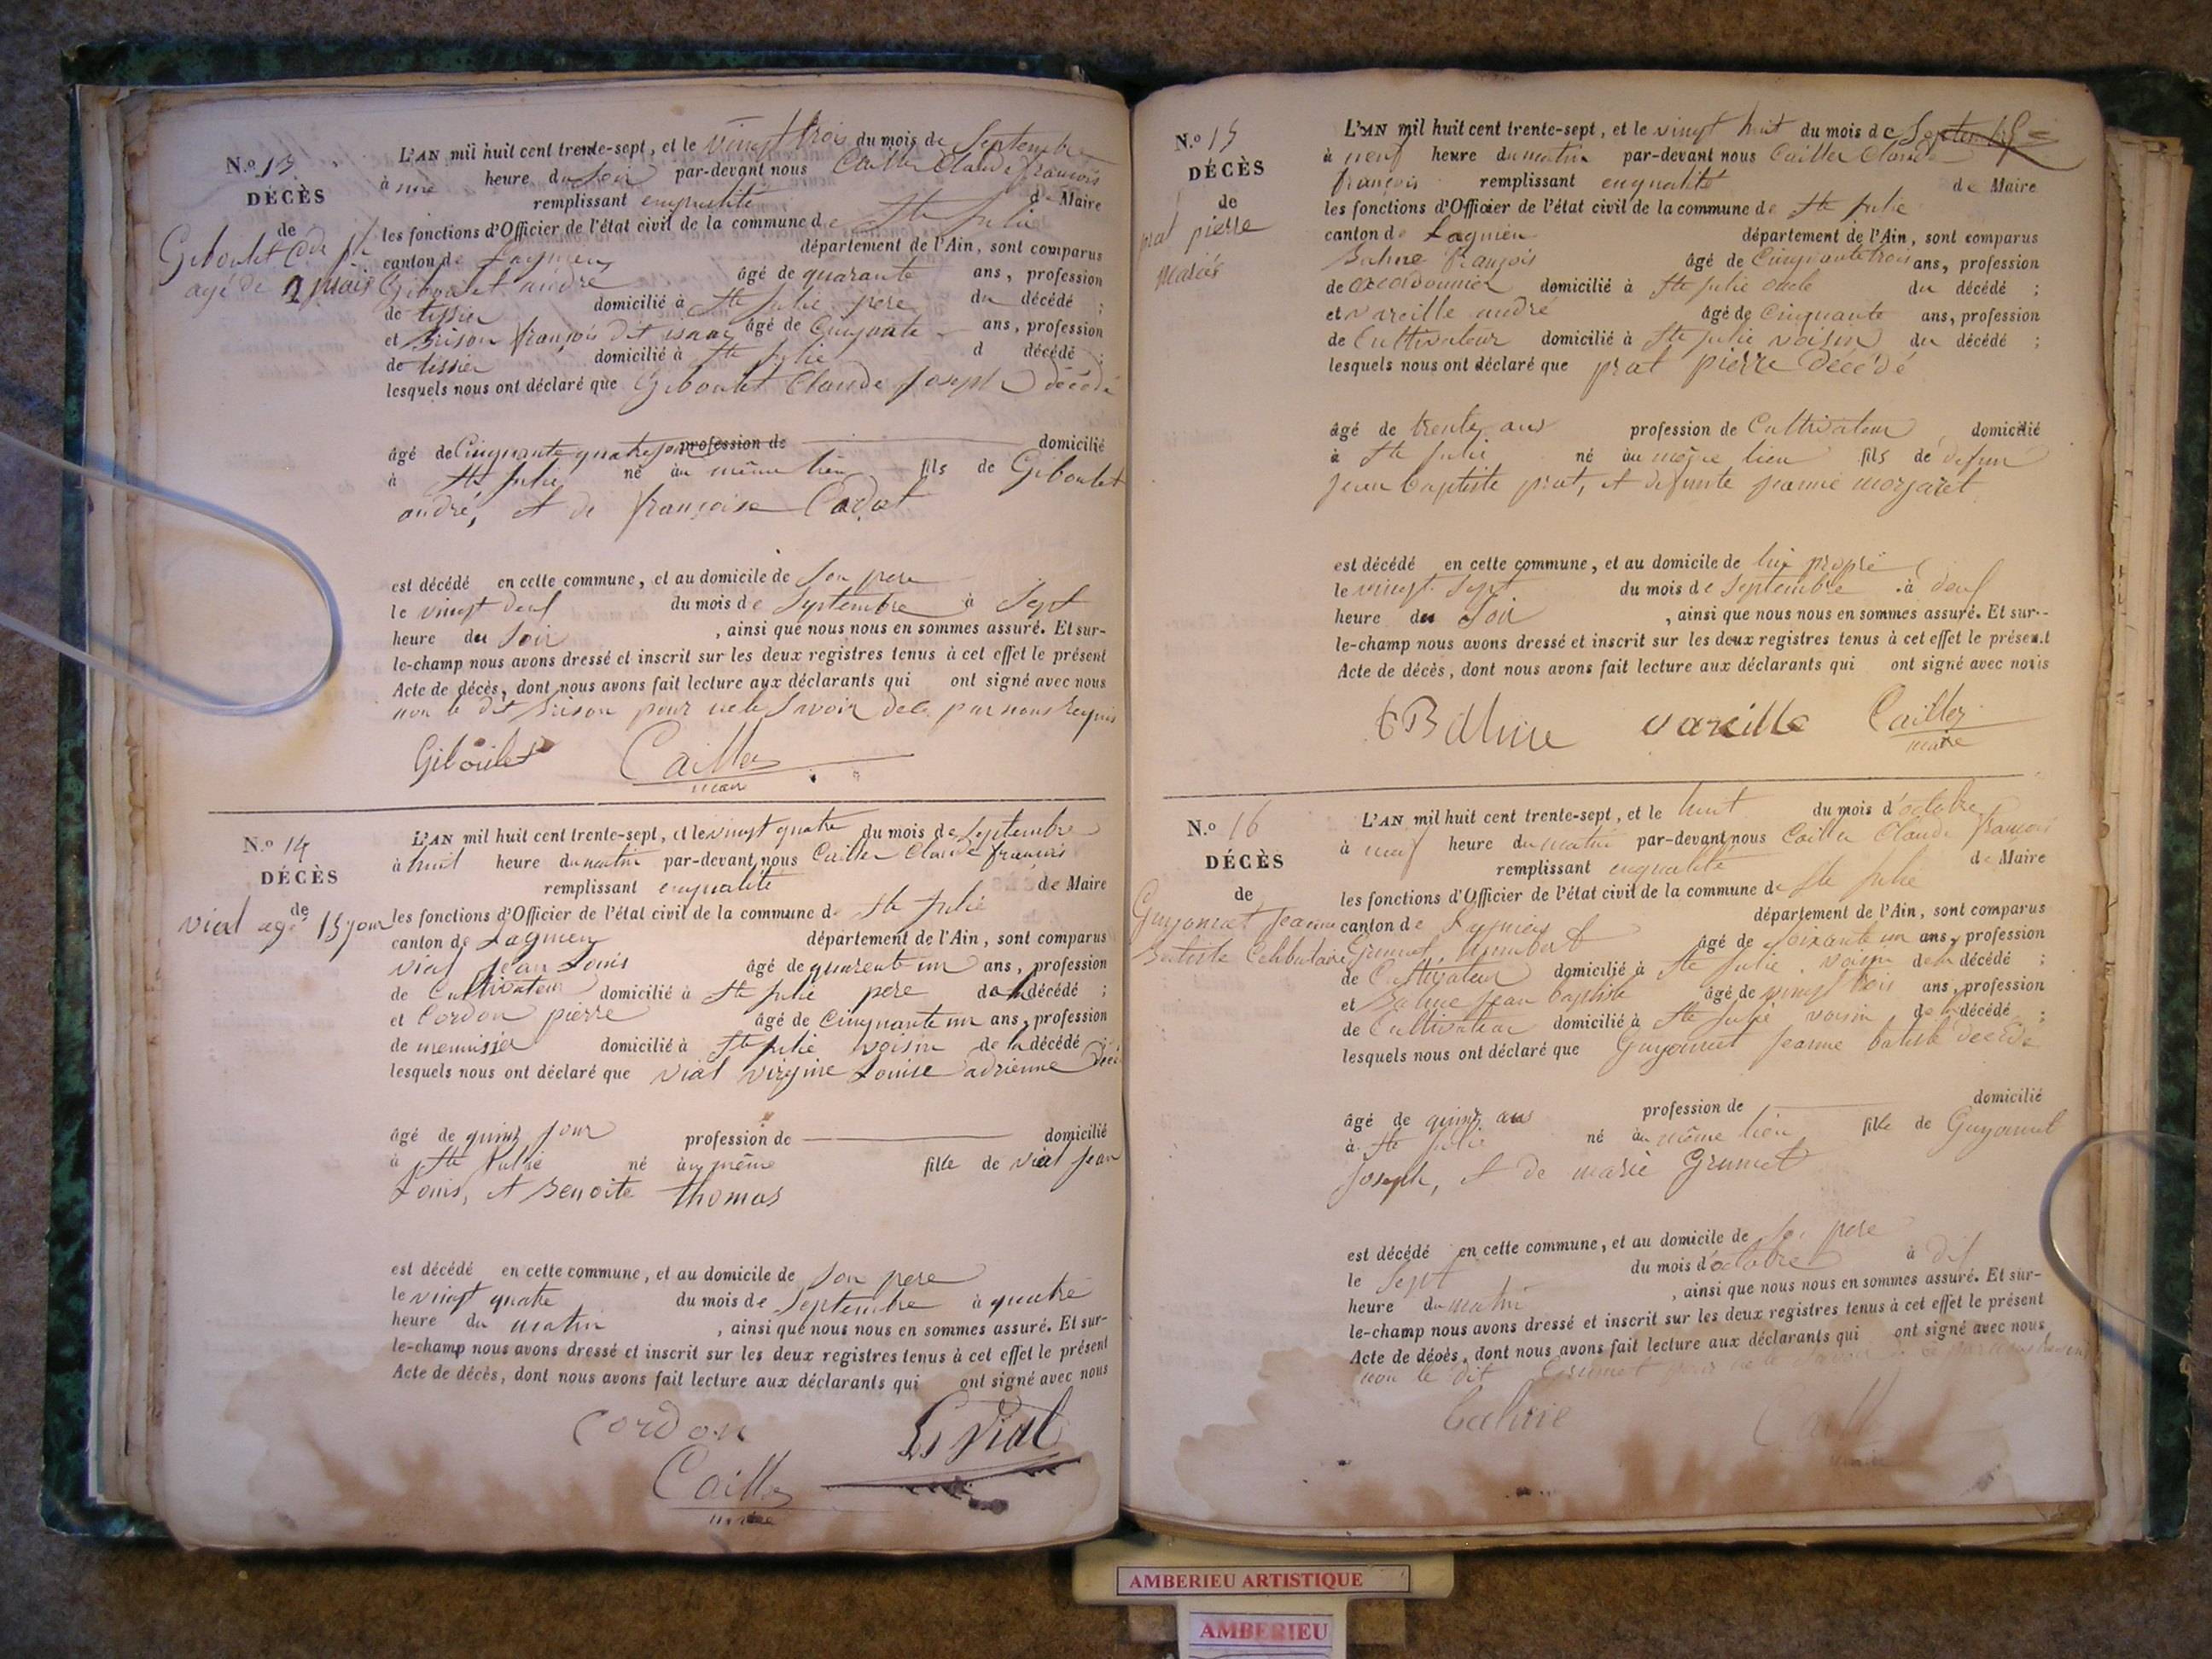 N.º 13
DÉCÈS
de
Giboulet Cde jh
agé de 2 mois
L'AN mil huit cent trente-sept, et le vingt trois du mois de Septembre
à une heure du Soir par-devant nous Cailler Claude françois
remplissant enqualité de Maire
les fonctions d'Officier de l'état civil de la commune de Ste Julie
canton de Lagnieu département de l'Ain, sont comparus
Giboulet andré âgé de quarante ans, profession
de tissier domicilié à Ste Julie pere du décédé ;
et Brison françois dit isaac âgé de Cinquante ans, profession
de tissier domicilié à Ste Julie d décédé ;
lesquels nous ont déclaré que Giboulet Claude Joseph décédé
âgé de Cinquante quatre jour profession de domicilié
à Ste Julie né au même lieu fils de Giboulet
andré, et de françoise Cadot
est décédé en cette commune, et au domicile de Son pere
le vingt deux du mois de Septembre à Sept
heure du Soir , ainsi que nous nous en sommes assuré. Et sur-
le-champ nous avons dressé et inscrit sur les deux registres tenus à cet effet le présent
Acte de décès, dont nous avons fait lecture aux déclarants qui ont signé avec nous
non le dit Brison pour ne le Savoir de ce par nous Requis
Giboulet Cailler
maire
N.º 14
DÉCÈS
de
vial agé 15 jour
L'AN mil huit cent trente-sept, et le vingt quatre du mois de Septembre
à huit heure du matin par-devant nous Cailler Claude françois
remplissant enqualité de Maire
les fonctions d'Officier de l'état civil de la commune de Ste Julie
canton de Lagnieu département de l'Ain, sont comparus
vial Jean Louis âgé de quarent un ans, profession
de Cultivateur domicilié à Ste Julie pere de la décédé ;
et Cordon pierre âgé de Cinquante un ans, profession
de menuisier domicilié à Ste Julie voisin de la décédé ;
lesquels nous ont déclaré que vial virginie Louise adrienne
âgé de quinz jour profession de domicilié
à Ste Julie né au même fille de vial Jean
Louis, et Benoite thomas
est décédé en cette commune, et au domicile de Son pere
le vingt quatre du mois de Septembre à quatre
heure du matin , ainsi que nous nous en sommes assuré. Et sur-
le-champ nous avons dressé et inscrit sur les deux registres tenus à cet effet le présent
Acte de décès, dont nous avons fait lecture aux déclarants qui ont signé avec nous
Cordon Ls Vial
Cailler
maire
N.º 15
DÉCÈS
de
prat pierre
mariés
L'AN mil huit cent trente-sept, et le vingt huit du mois de Septembre
à neuf heure du matin par-devant nous Cailler Claude
françois remplissant enqualité de Maire
les fonctions d'Officier de l'état civil de la commune de Ste Julie
canton de Lagnieu département de l'Ain, sont comparus
Balme françois âgé de Cinquante trois ans, profession
de cordonnier domicilié à Ste Julie oncle du décédé ;
et vareille andré âgé de Cinquante ans, profession
de Cultivateur domicilié à Ste Julie voisin du décédé ;
lesquels nous ont déclaré que prat pierre Décédé
âgé de trente ans profession de Cultivateur domicilié
à Ste Julie né au même lieu fils de defun
Jean baptiste prat, et defunte jeanne morjaret
est décédé en cette commune, et au domicile de lui propre
le vingt Sept du mois de Septembre à deux
heure du Soir , ainsi que nous nous en sommes assuré. Et sur-
le-champ nous avons dressé et inscrit sur les deux registres tenus à cet effet le présent
Acte de décès, dont nous avons fait lecture aux déclarants qui ont signé avec nous
Balme vareille Cailler
maire
N.º 16
DÉCÈS
de
Guyonnet Jeanne
Batiste Celibataire
L'AN mil huit cent trente-sept, et le huit du mois d'octobre
à neuf heure du matin par-devant nous Cailler Claude françois
remplissant enqualité de Maire
les fonctions d'Officier de l'état civil de la commune de Ste Julie
canton de Lagnieu département de l'Ain, sont comparus
Grumet humbert âgé de Soixante un ans, profession
de Cultivateur domicilié à Ste Julie voisin de la décédé ;
et Balme Jean baptiste âgé de vingt trois ans, profession
de Cultivateur domicilié à Ste Julie voisin de la décédé ;
lesquels nous ont déclaré que Guyonnet Jeanne batiste décédé
âgé de quinz ans profession de domicilié
à Ste Julie né au même lieu fille de Guyonnet
Joseph, et de marie Grumet
est décédé en cette commune, et au domicile de So pere
le Sept du mois d'octobre à dix
heure du matin , ainsi que nous nous en sommes assuré. Et sur-
le-champ nous avons dressé et inscrit sur les deux registres tenus à cet effet le présent
Acte de décès, dont nous avons fait lecture aux déclarants qui ont signé avec nous
non le dit Grumet pour ne le Savoir de ce par nous
balme Caill
maire
AMBERIEU ARTISTIQUE
AMBERIEU